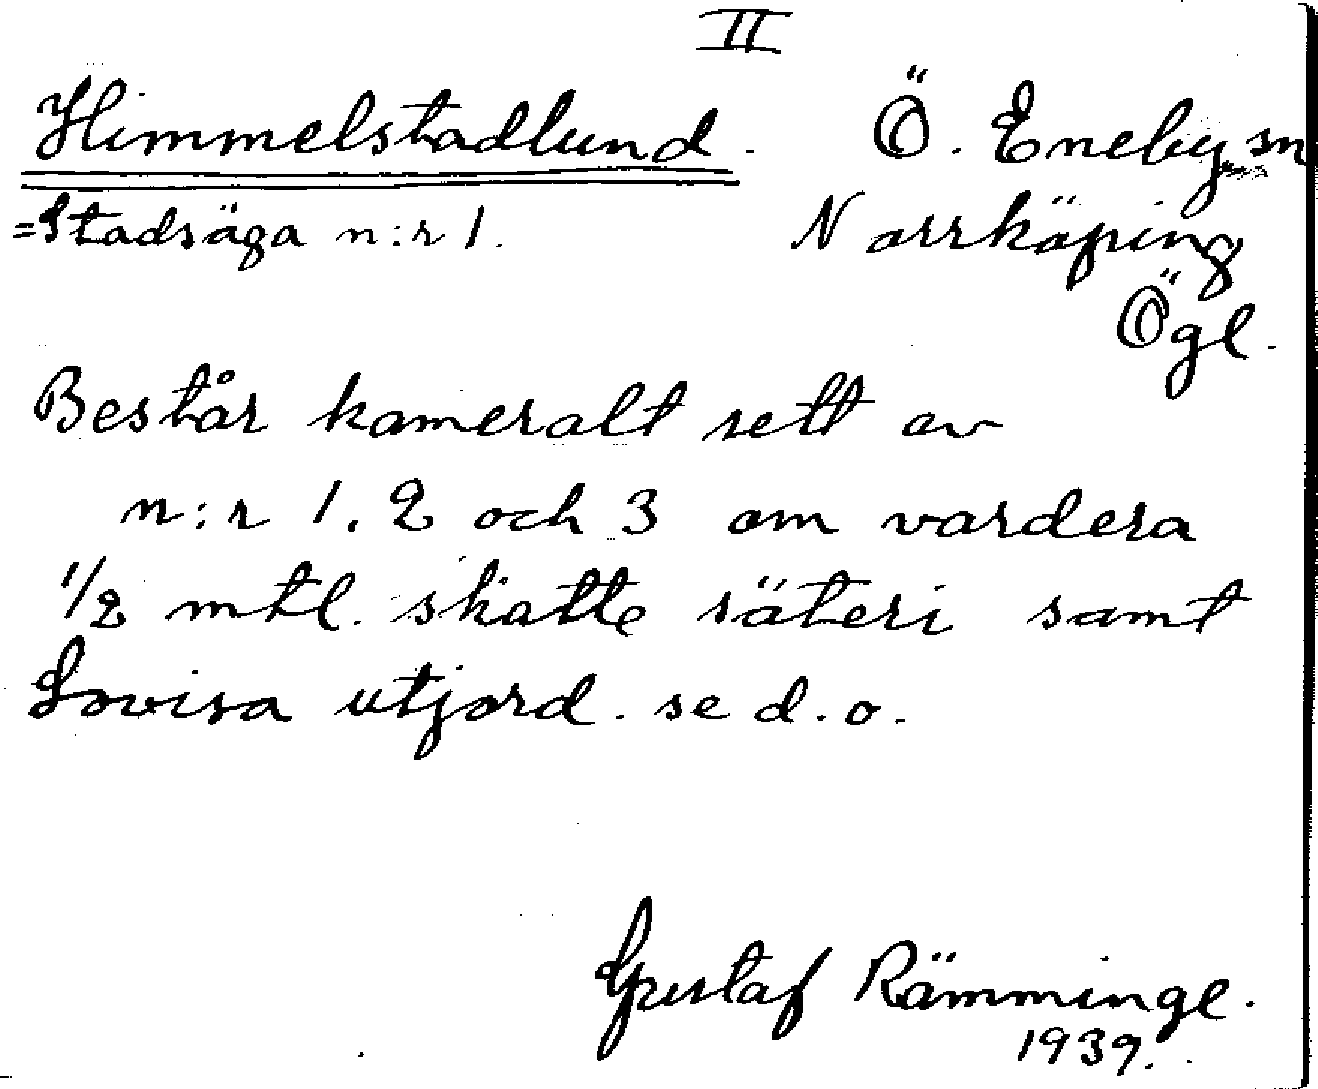 II
Himmelstadlund. Ö. Eneby sn
=Stadsäga n:r 1. Norrköping
Ögl.
Består kameralt sett av
n:r 1. 2 och 3 om vardera
1/2 mtl. skatte säteri samt
Lovisa utjord. se d. o.
Gustaf Rämminge.
1939.